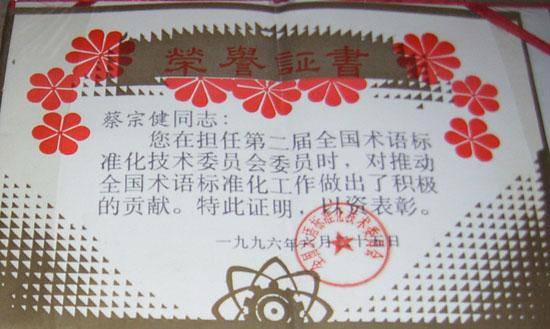 榮譽証書
蔡宗健同志：
您在担任第二届全国术语标
准化技术委员会委员时，对推动
全国术语标准化工作做出了积极
的贡献。特此证明，以资表彰。
一九九六年六月二十五日
全国术语标准化技术委员会